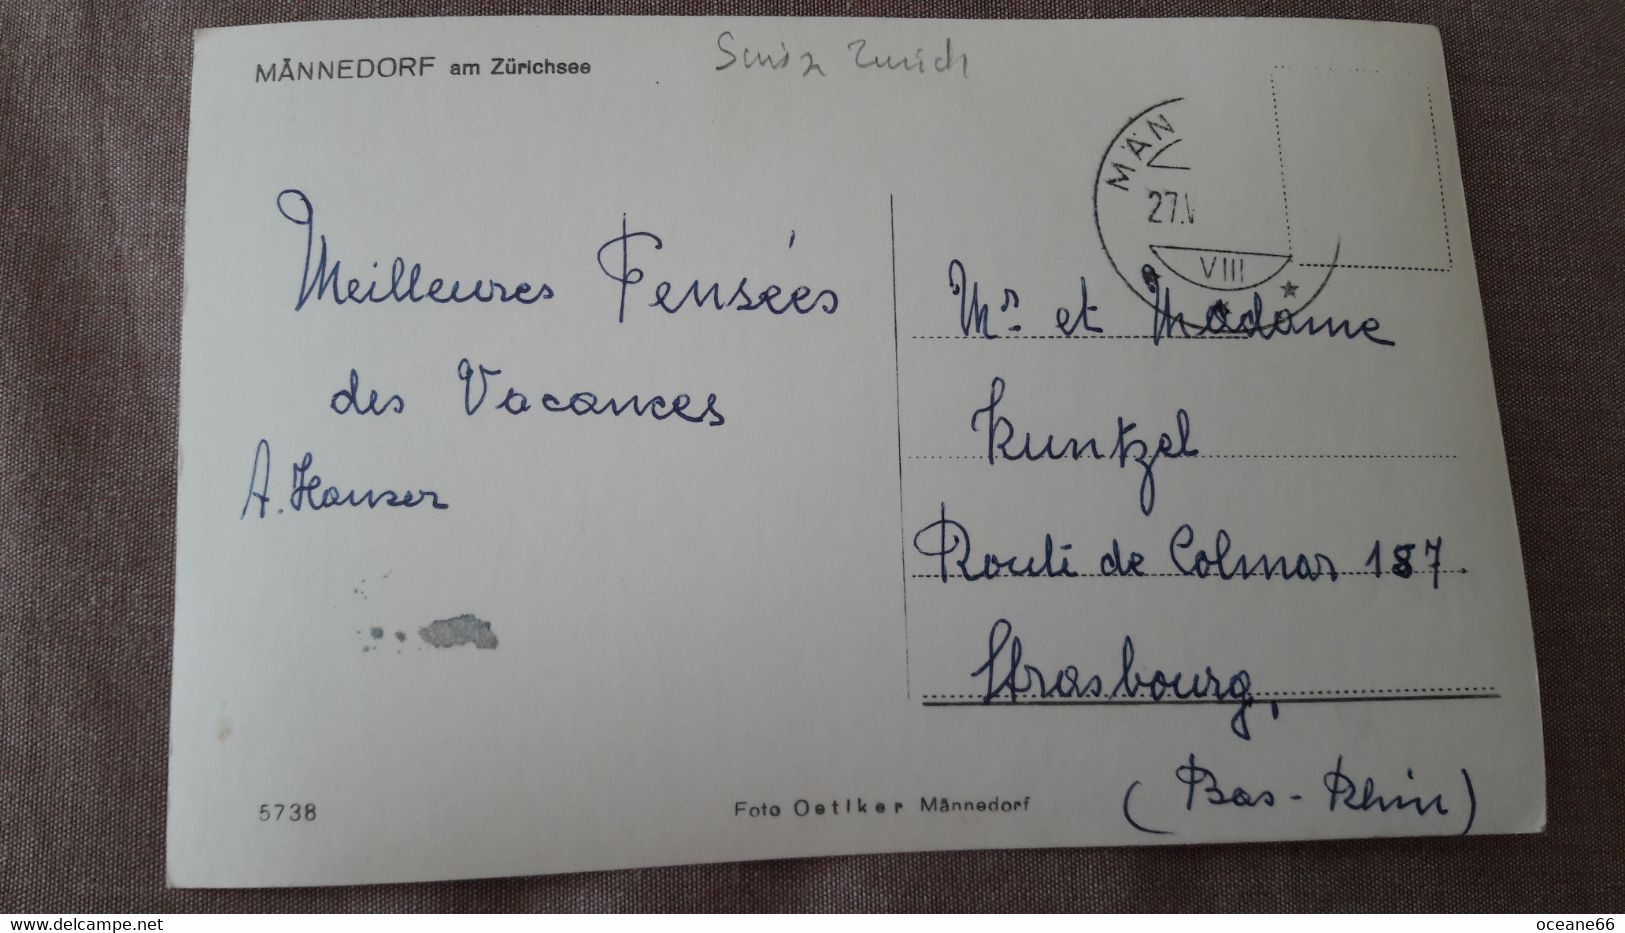 MÄNNEDORF am Zürichsee
Zurich
MÄN
27.V
VIII
Meilleures Pensées
des Vacances
A. Hauser
Mr. et Madame
Kuntzel
Route de Colmar 187
Strasbourg,
(Bas-Rhin)
5738
Foto Oetiker Männedorf
oceane66